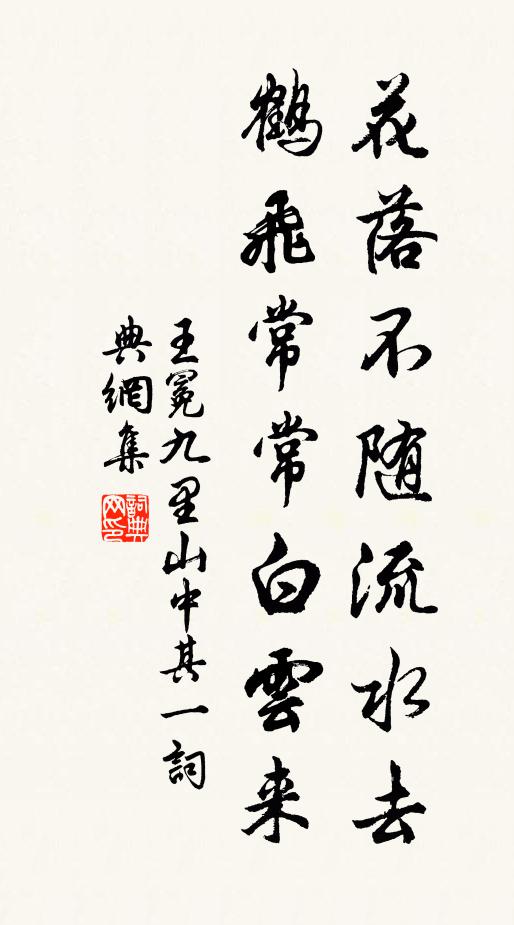 花落不随流水去
鶴飛常常白雲来
王冕九里山中其一詞
典網集
詞典网印